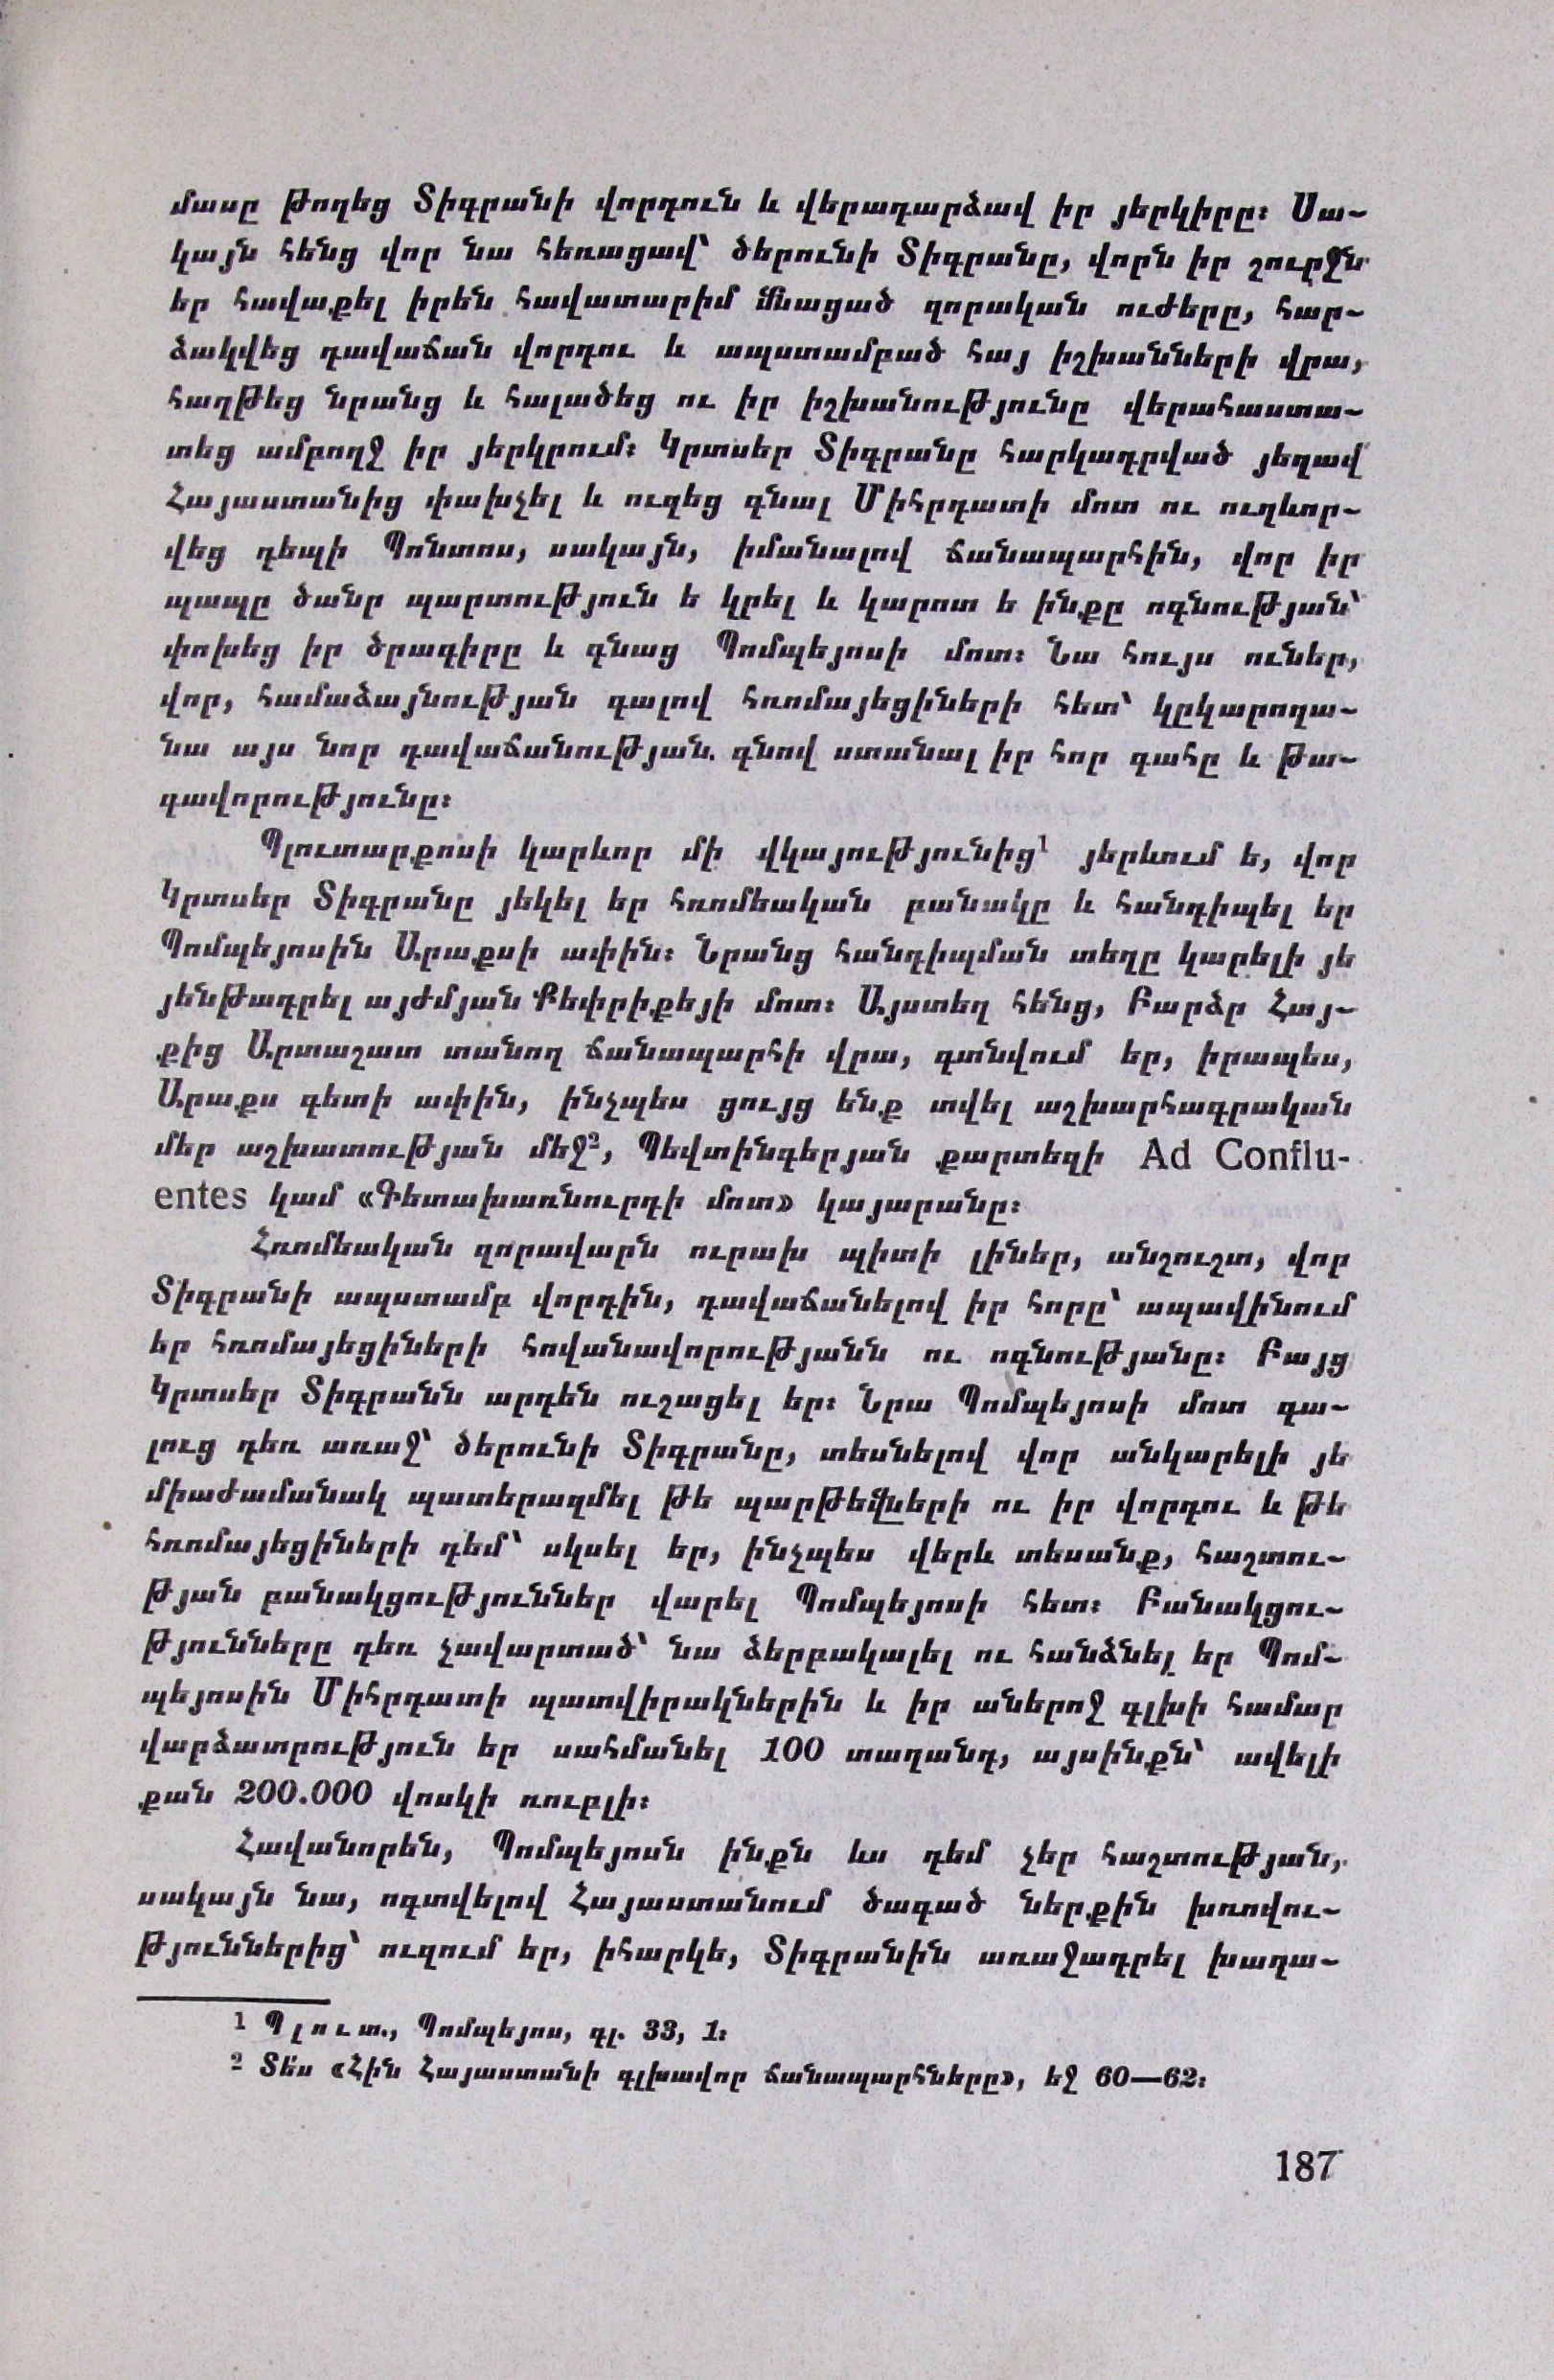 մասը թողեց Տիգրանի վորդուն և վերադարձավ իր յերկիրը։ Սա-
կայն հենց վոր նա հեռացավ՝ ծերունի Տիգրանը, վորն իր շուրջն
եր հավաքել իրեն հավատարիմ մնացած զորական ուժերը, հար-
ձակվեց դավաճան վորդու և ապստամբած հայ իշխանների վրա,
հաղթեց նրանց և հալածեց ու իր իշխանությունը վերահաստա-
տեց ամբողջ իր յերկրում։ Կրտսեր Տիգրանը հարկադրված յեղավ
Հայաստանից փախչել և ուզեց գնալ Միհրդատի մոտ ու ուղևոր-
վեց դեպի Պոնտոս, սակայն, իմանալով ճանապարհին, վոր իր
պապը ծանր պարտություն ե կրել և կարոտ ե ինքը ոգնության՝
փոխեց իր ծրագիրը և գնաց Պոմպեյոսի մոտ։ Նա հույս ուներ,
վոր, համաձայնության գալով հռոմայեցիների հետ՝ կըկարողա-
նա այս նոր դավաճանության գնով ստանալ իր հոր գահը և թա-
գավորությունը։
Պլուտարքոսի կարևոր մի վկայությունից¹ յերևում ե, վոր
Կրտսեր Տիգրանը յեկել եր հռոմեական բանակը և հանդիպել եր
Պոմպեյոսին Արաքսի ափին։ Նրանց հանդիպման տեղը կարելի յե
յենթադրել այժմյան Քեփրիքեյի մոտ։ Այստեղ հենց, Բարձր Հայ-
քից Արտաշատ տանող ճանապարհի վրա, գտնվում եր, իրապես,
Արաքս գետի ափին, ինչպես ցույց ենք տվել աշխարհագրական
մեր աշխատության մեջ², Պեվտինգերյան քարտեզի Ad Conflu-
entes կամ «Գետախառնուրդի մոտ» կայարանը։
Հռոմեական զորավարն ուրախ պիտի լիներ, անշուշտ, վոր
Տիգրանի ապստամբ վորդին, դավաճանելով իր հորը՝ ապավինում
եր հռոմայեցիների հովանավորությանն ու ոգնությանը։ Բայց
Կրտսեր Տիգրանն արդեն ուշացել եր։ Նրա Պոմպեյոսի մոտ գա-
լուց դեռ առաջ՝ ծերունի Տիգրանը, տեսնելով վոր անկարելի յե
միաժամանակ պատերազմել թե պարթևների ու իր վորդու և թե
հռոմայեցիների դեմ՝ սկսել եր, ինչպես վերև տեսանք, հաշտու-
թյան բանակցություններ վարել Պոմպեյոսի հետ։ Բանակցու-
թյունները դեռ չավարտած՝ նա ձերբակալել ու հանձնել եր Պոմ-
պեյոսին Միհրդատի պատվիրակներին և իր աներոջ գլխի համար
վարձատրություն եր սահմանել 100 տաղանդ, այսինքն՝ ավելի
քան 200.000 վոսկի ռուբլի։
Հավանորեն, Պոմպեյոսն ինքն ևս դեմ չեր հաշտության,
սակայն նա, ոգտվելով Հայաստանում ծագած ներքին խռովու-
թյուններից՝ ուզում եր, իհարկե, Տիգրանին առաջադրել խաղա-
¹ Պլուտ., Պոմպեյոս, գլ. 33, 1։
² Տե՛ս «Հին Հայաստանի գլխավոր ճանապարհները», եջ 60—62։
187